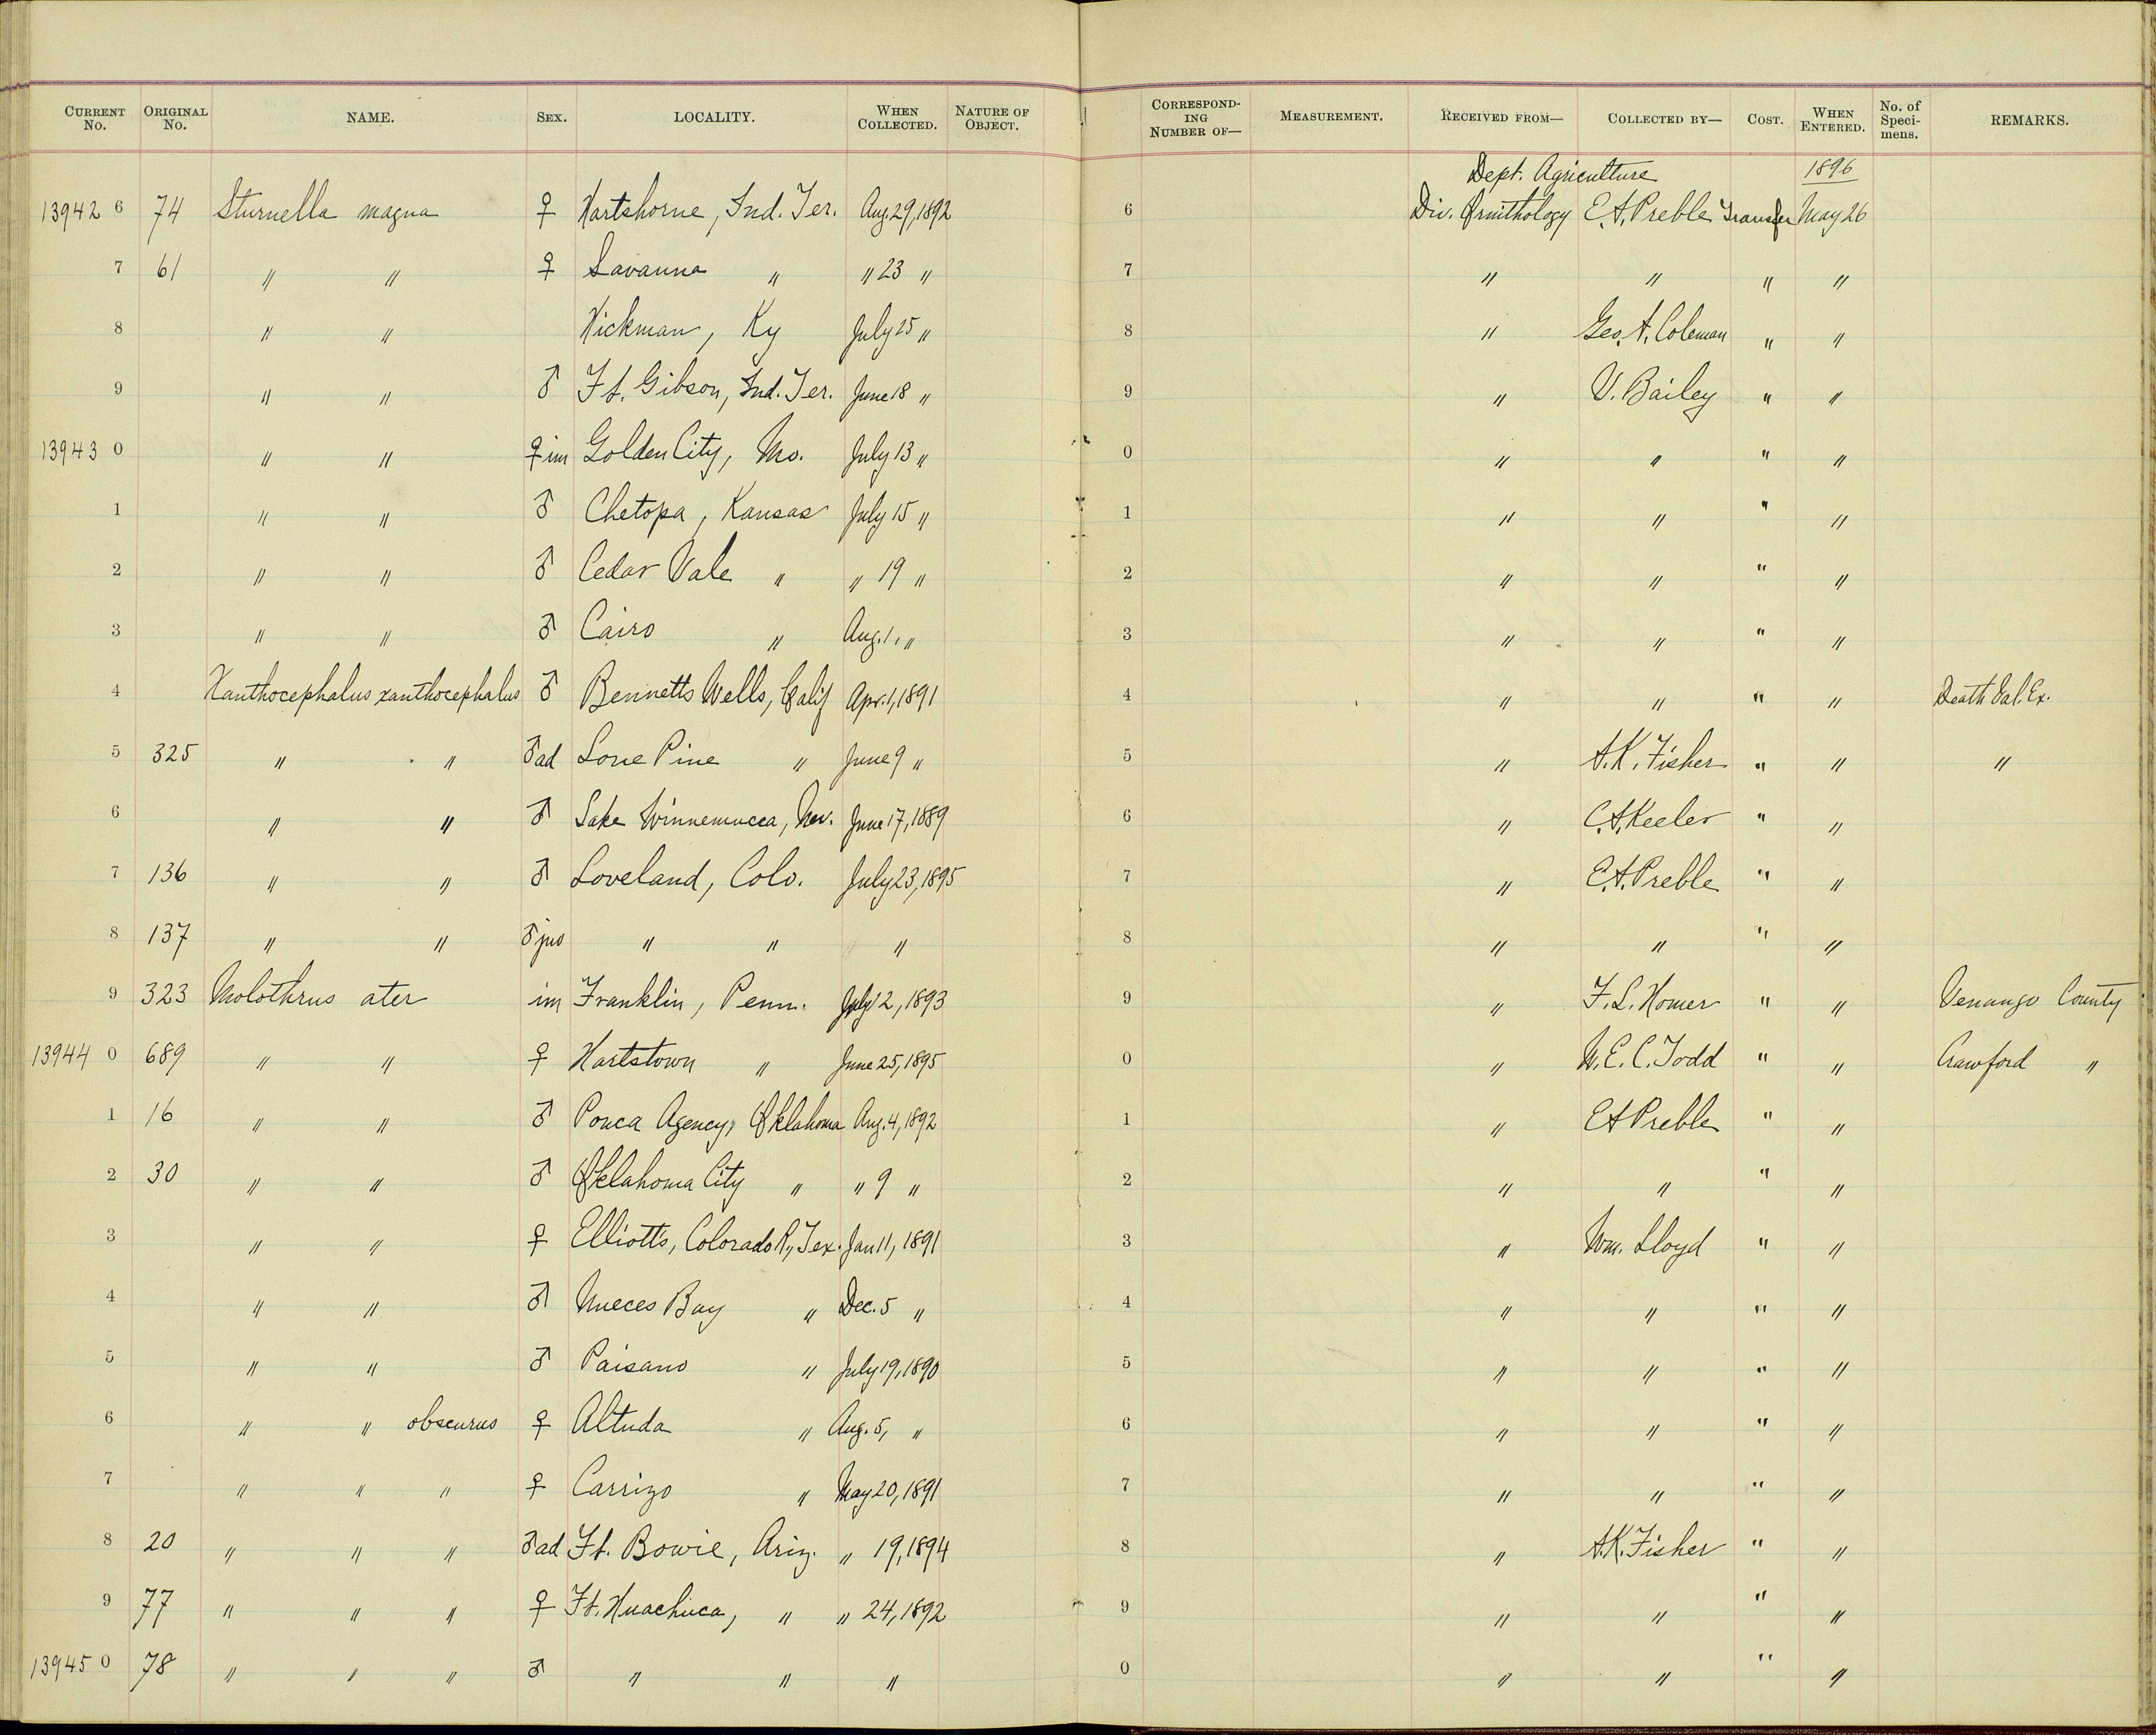 CURRENT No. ORIGINAL No. NAME. SEX. LOCALITY. WHEN COLLECTED. NATURE OF OBJECT. CORRESPONDING NUMBER OF— MEASUREMENT. RECEIVED FROM— COLLECTED BY— COST. WHEN ENTERED. No. of Specimens. REMARKS.
Dept. Agriculture 1896
13942 6 74 Sturnella magna ♀ Hartshorne, Ind. Ter. Aug. 29, 1892 6 Div. Ornithology E.A. Preble Transfer May 26
7 61 " " ♀ Savanna " " 23 " 7 " " " "
8 " " Hickman, Ky July 25 " 8 " Geo. A. Coleman " "
9 " " ♂ Ft. Gibson, Ind. Ter. June 18 " 9 " V. Bailey " "
13943 0 " " ♀ im Golden City, Mo. July 13 " 0 " " " "
1 " " ♂ Chetopa, Kansas July 15 " 1 " " " "
2 " " ♂ Cedar Vale " " 19 " 2 " " " "
3 " " ♂ Cairo " Aug. 1, " 3 " " " "
4 Xanthocephalus xanthocephalus ♂ Bennetts Wells, Calif Apr. 1, 1891 4 " " " " Death Val. Ex.
5 325 " " ♂ ad Lone Pine " June 9 " 5 " A.K. Fisher " " "
6 " " ♂ Lake Winnemucca, Nev. June 17, 1889 6 " C.A. Keeler " "
7 136 " " ♂ Loveland, Colo. July 23, 1895 7 " E.A. Preble " "
8 137 " " ♂ juv " " " 8 " " " "
9 323 Molothrus ater im Franklin, Penn. July 12, 1893 9 " F.L. Homer " " Venango County
13944 0 689 " " ♀ Hartstown " June 25, 1895 0 " W.E.C. Todd " " Crawford "
1 16 " " ♂ Ponca Agency, Oklahoma Aug. 4, 1892 1 " E A Preble " "
2 30 " " ♂ Oklahoma City " " 9 " 2 " " " "
3 " " ♀ Elliotts, Colorado R., Tex. Jan 11, 1891 3 " Wm. Lloyd " "
4 " " ♂ Nueces Bay " Dec. 5 " 4 " " " "
5 " " ♂ Paisano " July 19, 1890 5 " " " "
6 " " obscurus ♀ Altuda " Aug. 5, " 6 " " " "
7 " " " ♀ Carrizo " May 20, 1891 7 " " " "
8 20 " " " ♂ ad Ft. Bowie, Ariz. " 19, 1894 8 " A.K. Fisher " "
9 77 " " " ♀ Ft. Huachuca, " " 24, 1892 9 " " " "
13945 0 78 " " " ♂ " " " 0 " " " "